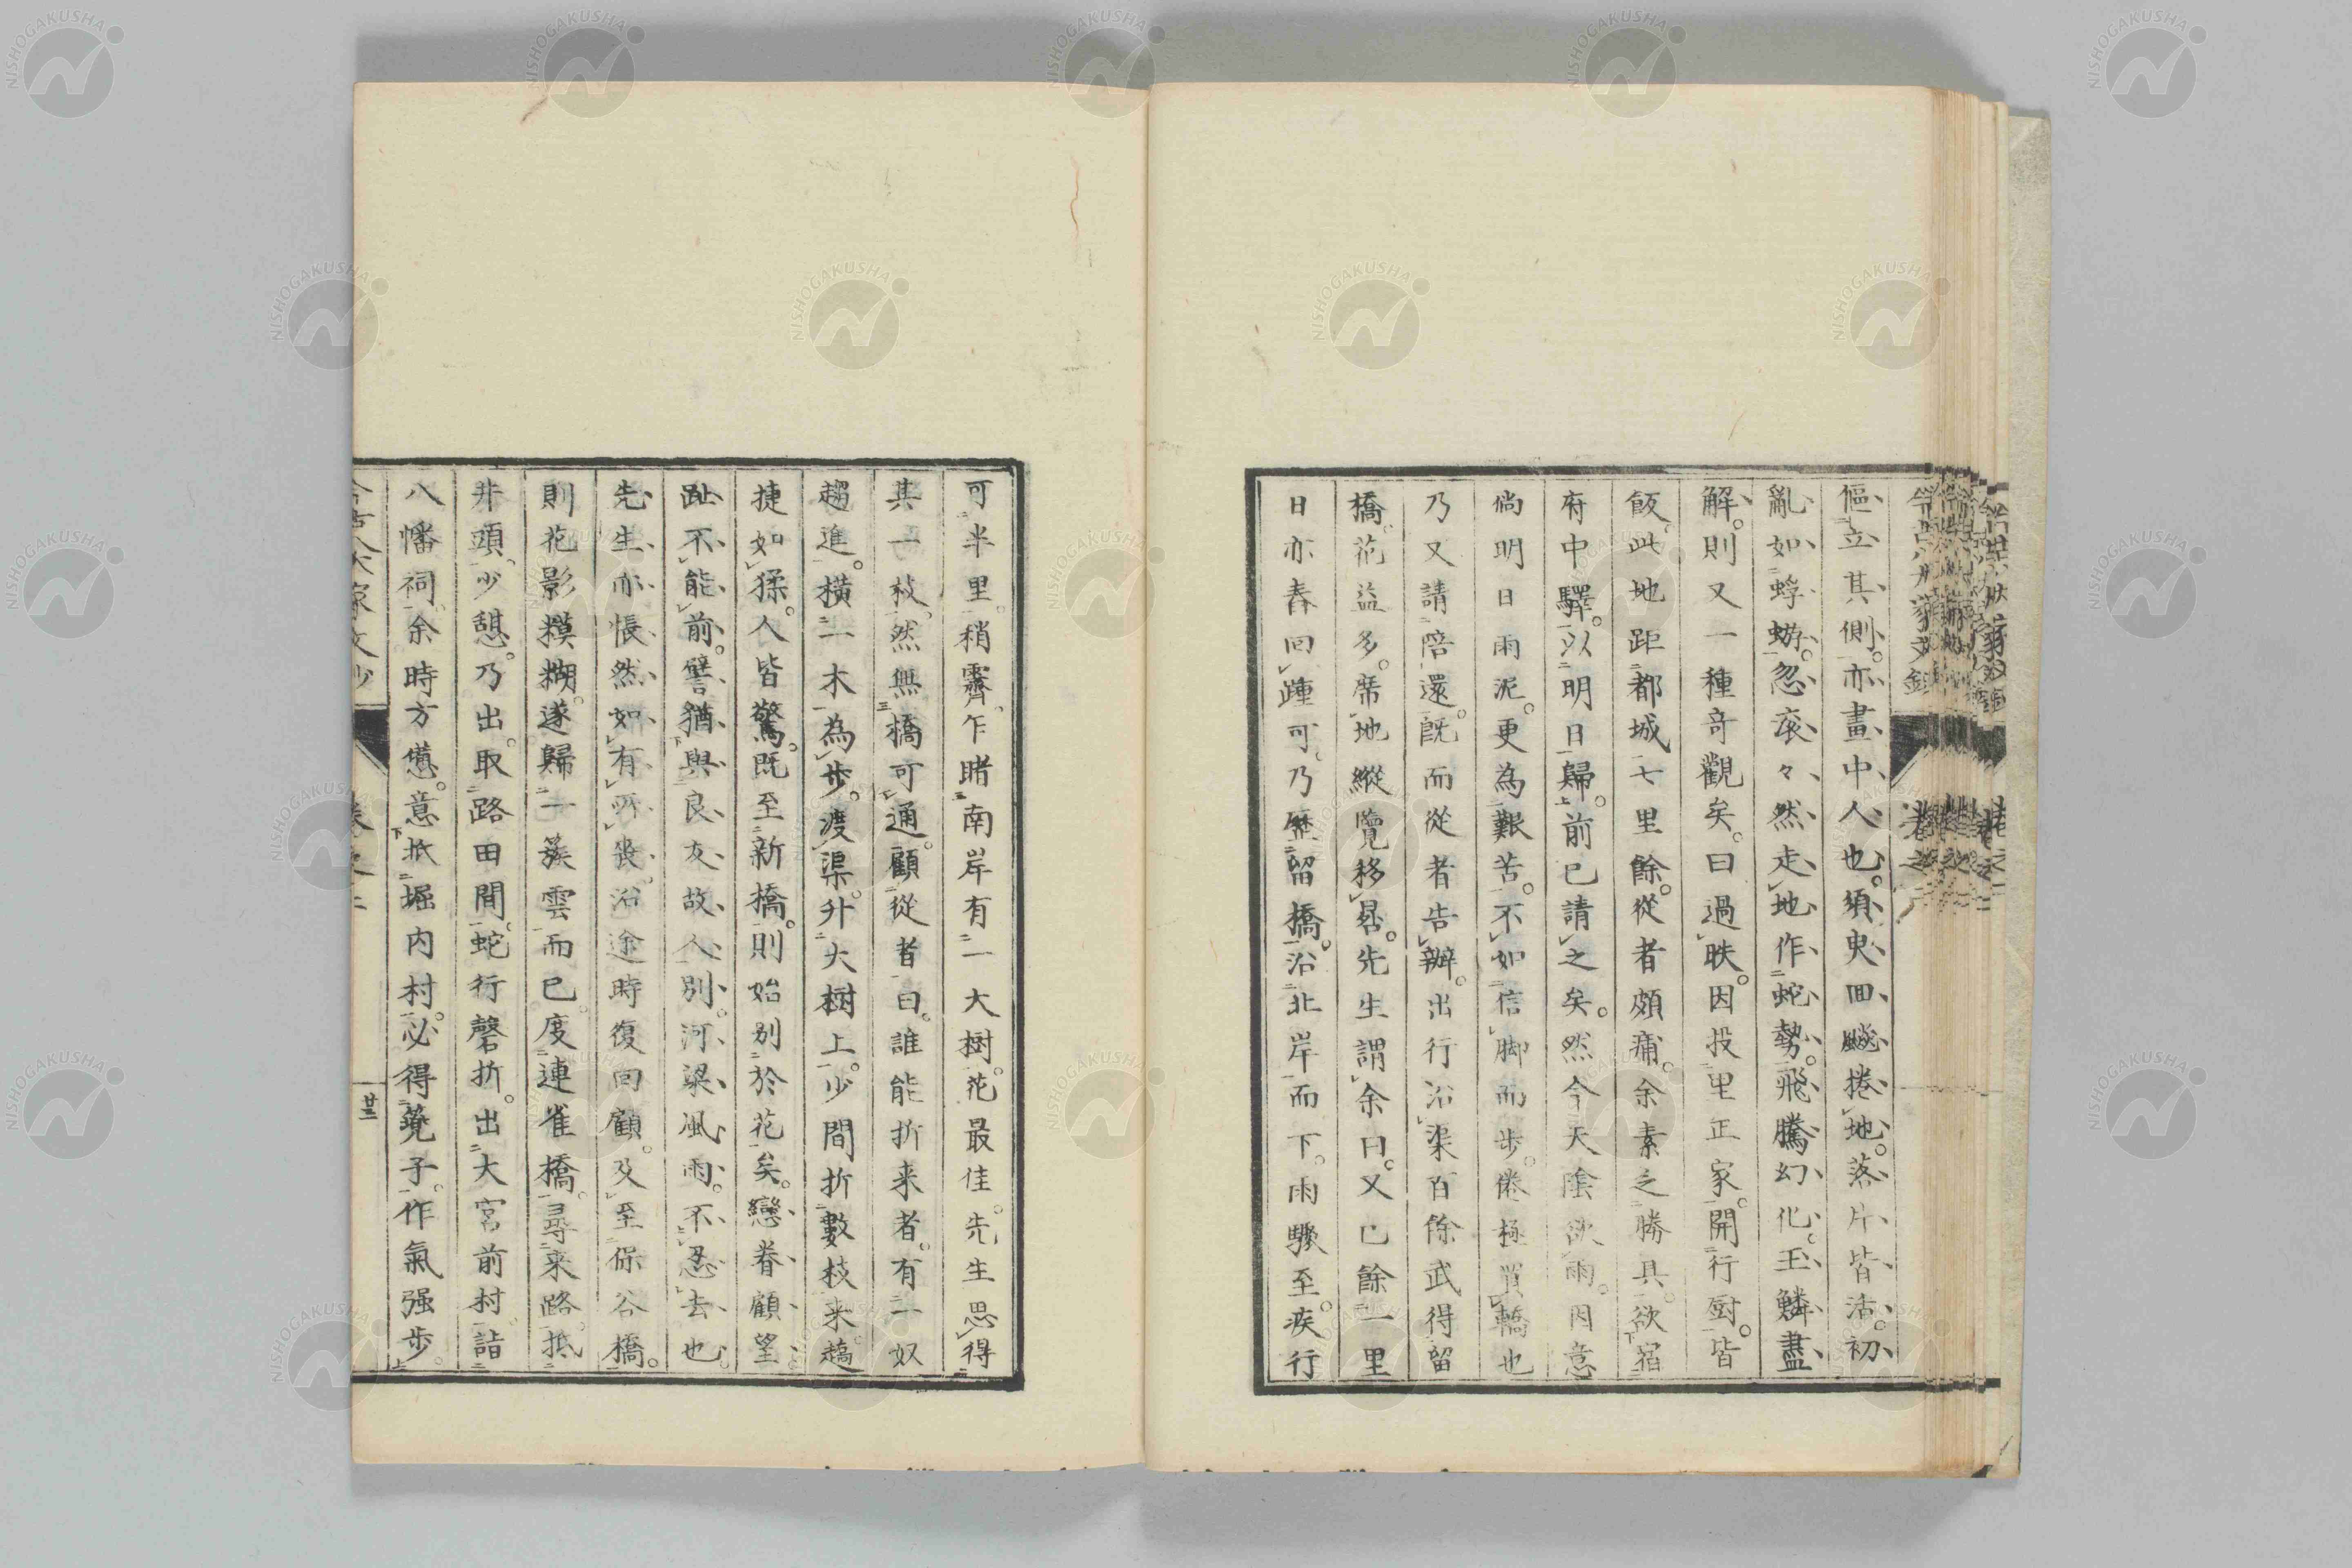 傴立其側。亦畫中人也。須臾回飈捲地。落片皆活。初
亂如蜉蝣。忽滾々然走地作蛇勢。飛騰幻化。玉鱗盡
解。則又一種奇觀矣。曰過昳。因投里正家。開行厨。皆
飯。此地距都城七里餘。從者頗痡。余素乏勝具。欲宿
府中驛。以明日歸。前已請之矣。然今天陰欲雨。因意
倘明日雨泥。更為艱苦。不如信脚而步。倦極買轎也
乃又請陪還。既而從者告辦。出行沿渠百餘武得留
橋。花益多。席地縱覽移晷。先生謂余曰。又已餘一里
日亦舂回踵可。乃歷留橋。沿北岸而下。雨驟至。疾行
可半里。稍霽。乍睹南岸有一大樹。花最佳。先生思得
其一枝。然無橋可通。顧從者曰。誰能折来者。有一奴
趨進。橫一木為步。渡渠。升大樹上。少間折數枝来。趫
捷如猱。人皆驚。既至新橋。則始别於花矣。戀眷顧望
趾不能前。譬猶與良友故人別。河梁風雨。不忍去也
先生亦悵然如有所喪。沿途時復回顧。及至保谷橋。
則花影糢糊。遂歸一簇雲而已。度連雀橋。尋来路。抵
井頭。少憇。乃出。取路田間。蛇行磬折。出大宮前村。詣
八幡祠。余時方憊。意抵堀内村。必得蕘子。作氣强歩。
卷之二
廿三
NISHOGAKUSHA